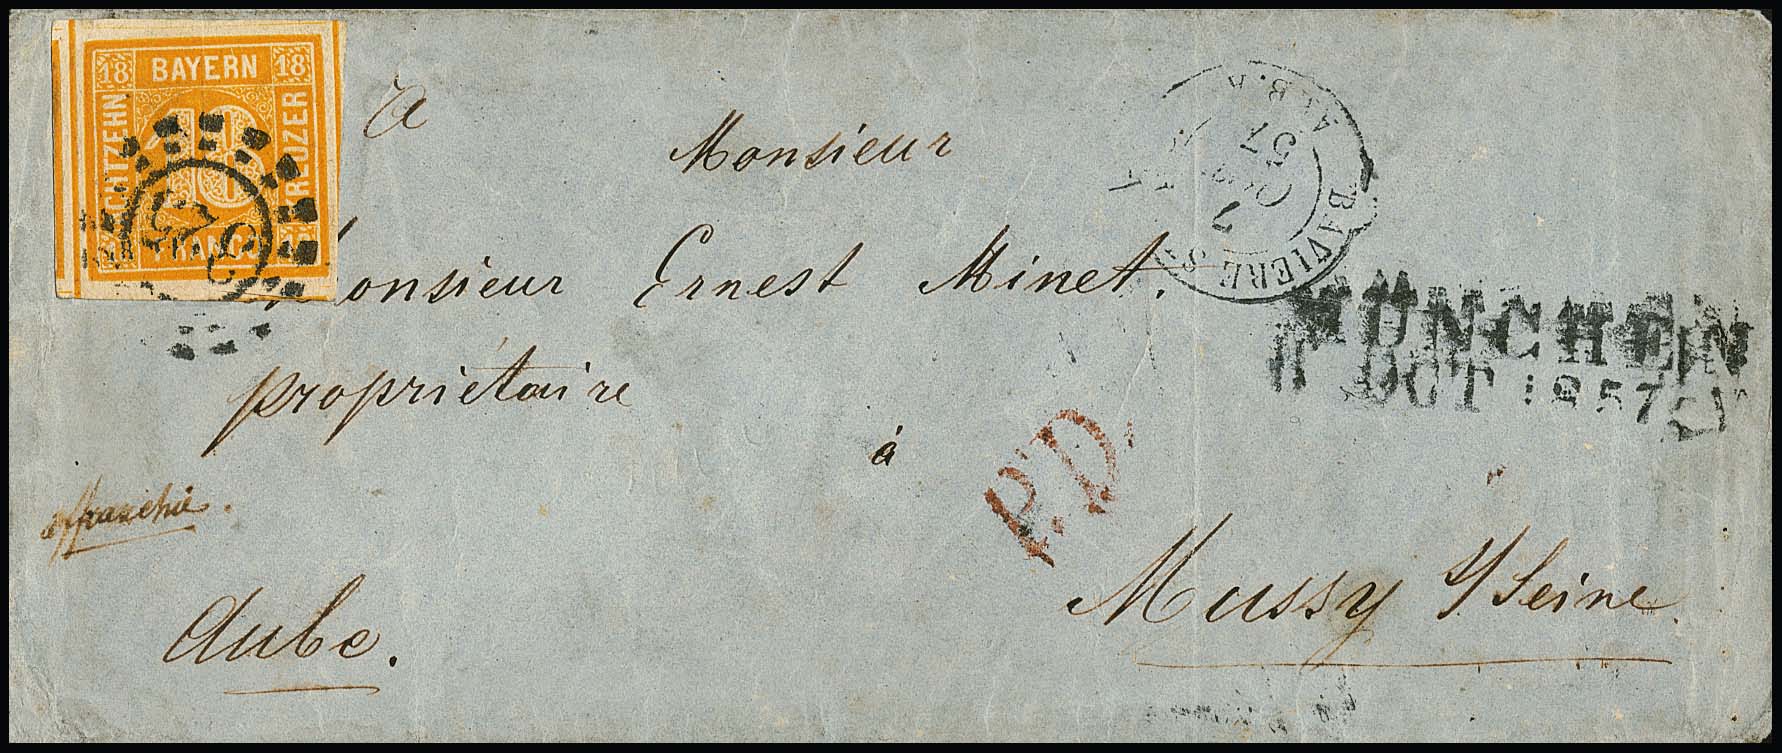 18 BAYERN 18
ACHTZEHN
KREUZER
18
FRANCO
à
Monsieur
Monsieur Ernest Minet.
propriétaire
à
affranchie.
Mussy s/ Seine.
Aube.
BAVIERE
7
OCT
57
MÜNCHEN
OCT 1857
P.D.